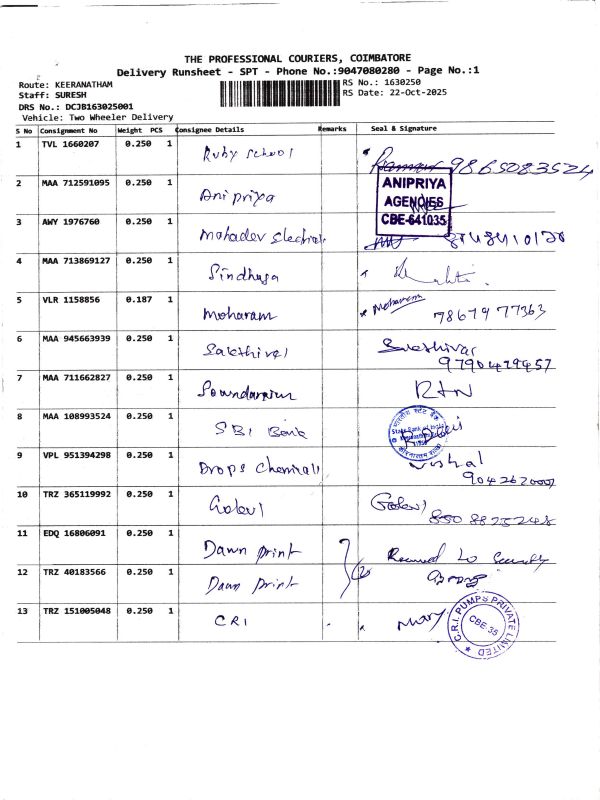 THE PROFESSIONAL COURIERS, COIMBATORE
Delivery Runsheet - SPT - Phone No.:9047080280 - Page No.:1
Route: KEERANATHAM
Staff: SURESH
DRS No.: DCJB163025001
Vehicle: Two Wheeler Delivery
RS No.: 1630250
RS Date: 22-Oct-2025
S No Consignment No Weight PCS Consignee Details Remarks Seal & Signature
1 TVL 1660207 0.250 1 Ruby school 9865083524
2 MAA 712591095 0.250 1 Ani priya
ANIPRIYA
AGENCIES
CBE-641035
3 AWY 1976760 0.250 1 Mahadev
4 MAA 713869127 0.250 1 Sindhuja
5 VLR 1158856 0.187 1 Moharam Moharam 7867977363
6 MAA 945663939 0.250 1 Sakthivel Sakthivel
9790429457
7 MAA 711662827 0.250 1 RTN
8 MAA 108993524 0.250 1 SBI Bank
भारतीय स्टेट बैंक
State Bank of India
9 VPL 951394298 0.250 1 Drops Chemicals Vishal
10 TRZ 365119992 0.250 1
11 EDQ 16806091 0.250 1 Dawn print Received to Security
12 TRZ 40183566 0.250 1 Dawn print
13 TRZ 151005048 0.250 1 CRI Mary
C.R.I. PUMPS PRIVATE LIMITED
CBE-35